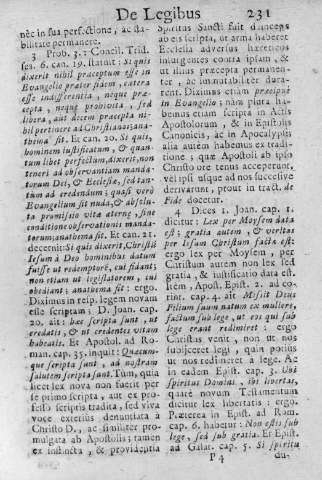 De Legibus 231
nèc in sua perfectione, ac sta-
bilitate permanere.
3 Prob. 3.: Concil. Trid.
sess. 6. can. 19. statuit: Si quis
dixerit nihil præceptum esse in
Evangelio præter fidem, cætera
esse indifferentia, neque præ-
cepta, neque prohibita, sed
libera, aut decem præcepta ni-
hil pertinere ad Christianos; ana-
thema sit. Et can. 20. Si quis,
hominem justificatum, & quan-
tum libet perfectum, dixerit, non
teneri ad observantiam manda-
torum Dei, & Ecclesiæ, sed tan-
tum ad credendum; quasi verò
Evangelium sit nuda, & absolu-
ta promissio vitæ æternæ, sine
conditione observationis manda-
torum; anathema sit. Et can. 21.
decernit: Si quis dixerit, Christũ
Jesum à Deo hominibus datum
fuisse ut redemptorẽ, cui fidant;
non etiam ut legislatorem, cui
obediant; anathema sit: ergo.
Diximus in resp. legem novam
esse scriptam; D. Joan. cap.
20. ait: hæc scripta sunt, ut
credatis, & ut credentes vitam
habeatis. Et Apostol. ad Ro-
man. cap. 35. inquit: Quæcum-
que scripta sunt, ad nostram
salutem scripta sunt. Tum, quia
licet lex nova non fuerit per
se primo scripta, aut ex pro-
fesso scriptis tradita, sed viva
voce exterius denuntiata à
Christo D., ac similiter pro-
mulgata ab Apostolis; tamen
ex instincta, & providentia
Spiritus Sancti fuit deinceps
ab eis scripta, ut arma haberet
Ecclesia adversus hæreticos
insurgentes contra ipsam, &
ut illius præcepta permanent-
er, ac immutabiliter dura-
rent. Diximus etiam præcipuè
in Evangelio; nàm plura ha-
bemus etiam scripta in Actis
Apostolorum, & in Epistolis
Canonicis, ac in Apocalypsi;
alia autèm habemus ex tradi-
tione; quæ Apostoli ab ipso
Christi ore tenus acceperunt,
vel ipsi usque ad nos successive
derivarunt, prout in tract. de
Fide docetur.
4 Dices 1. Joan. cap. 1.
dicitur: Lex per Moysem data
est; gratia autem, & veritas
per Iesum Christum facta est:
ergo lex per Moysem, per
Christum autem non lex sed
gratia, & justificatio data est.
Item, Apost. Epist. 2. ad co-
rint. cap. 4. ait Misit Deus
Filium suum natum ex muliere,
factum sub lege, ut eos qui sub
lege erant redimeret: ergo
Christus venit, non ut nos
subjiceret legi, quin potius
ut nos redimeret a lege. Ac
in eadem Epist. cap. 3. Ubi
spiritus Domini, ibi libertas,
quare novum Testamentum
dicitur lex libertatis: ergo.
Præterea in Epist. ad Rom.
cap. 6. habetur: Non estis sub
lege, sed sub gratia. Et Epist.
ad Galat. cap. 5. Si spiritu
P 4 du-